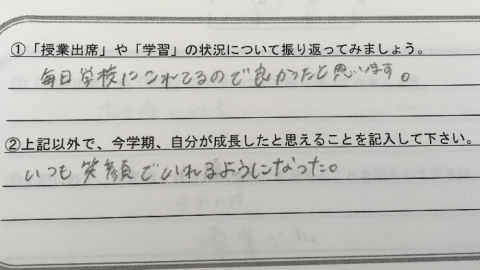 ①「授業出席」や「学習」の状況について振り返ってみましょう。
毎日学校にこれてるので良かったと思います。
②上記以外で、今学期、自分が成長したと思えることを記入して下さい。
いつも笑顔でいれるようになった。